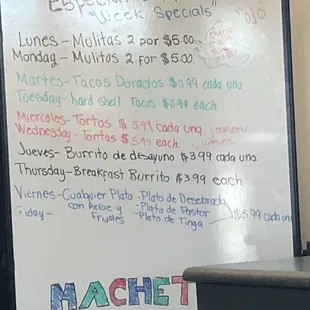 Especial
"Week Specials"
ojo
Lunes - Mulitas 2 por $5.00
Monday - Mulitas 2 for $5.00
Martes - Tacos Dorados $0.99 cada uno
Tuesday - hard shell Tacos $0.99 each
Miercoles - Tortas $5.99 cada una
Wednesday - Tortas $5.99 each
Jueves - Burrito de desayuno $3.99 cada uno
Thursday - Breakfast Burrito $3.99 each
Viernes - Cualquier Plato - Plato de Desebrada
con Arroz y - Plato de Pastor $5.99 cada uno
Friday - Frijoles - Plato de Tinga
MACHET